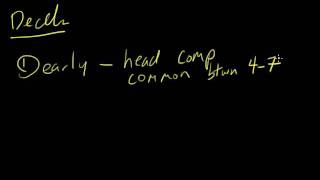 Decels
① early – head comp
common btwn 4-7